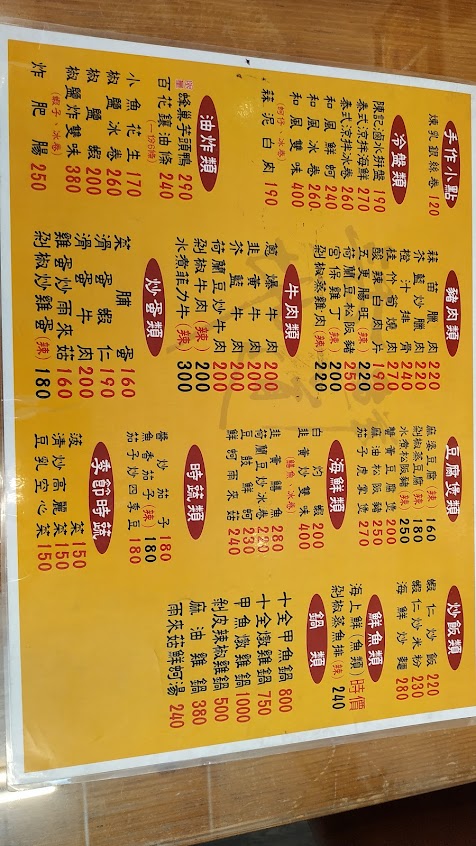 手作小點
煉乳銀絲卷 120
冷盤類
陳記滷水拼盤 190
泰式涼拌海鮮 270
泰式涼拌冰卷 260
和風鮮蚵 240
和風冰卷 260
和風雙味 400
(蚵仔、冰卷)
蒜泥白肉 190
油炸類
限量
蜂巢芋頭鴨 290
百花鑲油條 240
(一份6條)
小魚花生 170
椒鹽冰卷 260
椒鹽蝦 200
椒鹽炸雙味 380
(蝦子、冰卷)
炸肥腸 250
豬肉類
蒜苗臘肉 220
芥藍炒臘肉 220
橙汁排骨 220
桂竹筍燒肉 220
酸辣白肉片 190
五更腸旺(辣) 220
荷蘭豆松飯豬 250
宮保雞丁(辣) 200
剁椒蒸雞肉(辣) 220
牛肉類
蔥爆牛肉 200
韭黃牛肉 200
芥藍牛肉 200
荷蘭豆炒牛肉 200
剁椒牛肉(辣) 200
水煮菲力牛(辣) 300
炒蛋類
菜脯蛋 160
滑蛋蝦仁 190
滑蛋牛肉 200
雞蛋炒雨來菇 160
剁椒炒雞蛋(辣) 180
豆腐煲類
麻婆豆腐(辣) 160
剁椒蒸豆腐(辣) 180
水煮松飯豬(辣) 250
蟹黃豆腐煲 200
麻油松飯豬 250
茄子虎掌煲 270
海鮮類
白灼蝦 200
韭黃炒雙味 400
(鱔魚、冰卷)
韭黃鱔魚 280
荷蘭豆炒冰卷 220
豆鼓鮮蚵 230
鮮蚵雨來菇 240
時蔬類
醬炒茄子 180
魚香茄子(辣) 180
茄子炒四季豆 180
季節時蔬
菠菜 150
清炒高麗菜 150
豆乳空心菜 150
炒飯類
蝦仁炒飯 220
蝦仁炒米粉 230
海鮮炒麵 280
鮮魚類
海上鮮(魚類)時價
剁椒蒸魚排(辣) 240
鍋類
十全甲魚鍋 800
十全燉雞鍋 750
甲魚燉雞鍋 1000
剝皮辣椒雞鍋 500
麻油雞鍋 380
雨來菇鮮蚵湯 240